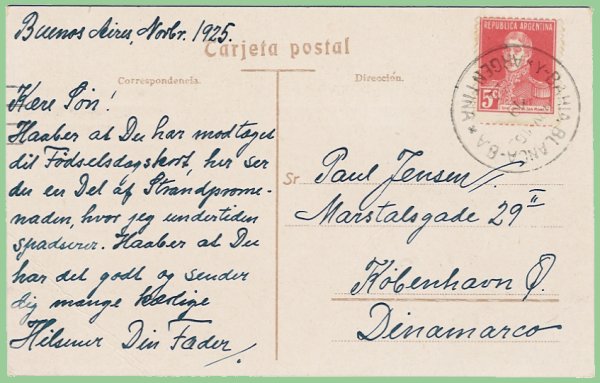 Buenos Aires, Novbr. 1925.
Carjeta postal
Correspondencia.
Dirección.
Kære Søn!
Haaber at Du har modtaget
dit Fødselsdagskort, her ser
du en Del af Strandprome-
naden, hvor jeg undertiden
spadserer. Haaber at Du
har det godt og sender
dig mange kærlige
Hilsner Din Fader.
REPUBLICA ARGENTINA
5
BAHIA BLANCA - B.A
ARGENTINA
Sr Paul Jensen.
Marstalsgade 29 II
København Ø.
Dinamarco